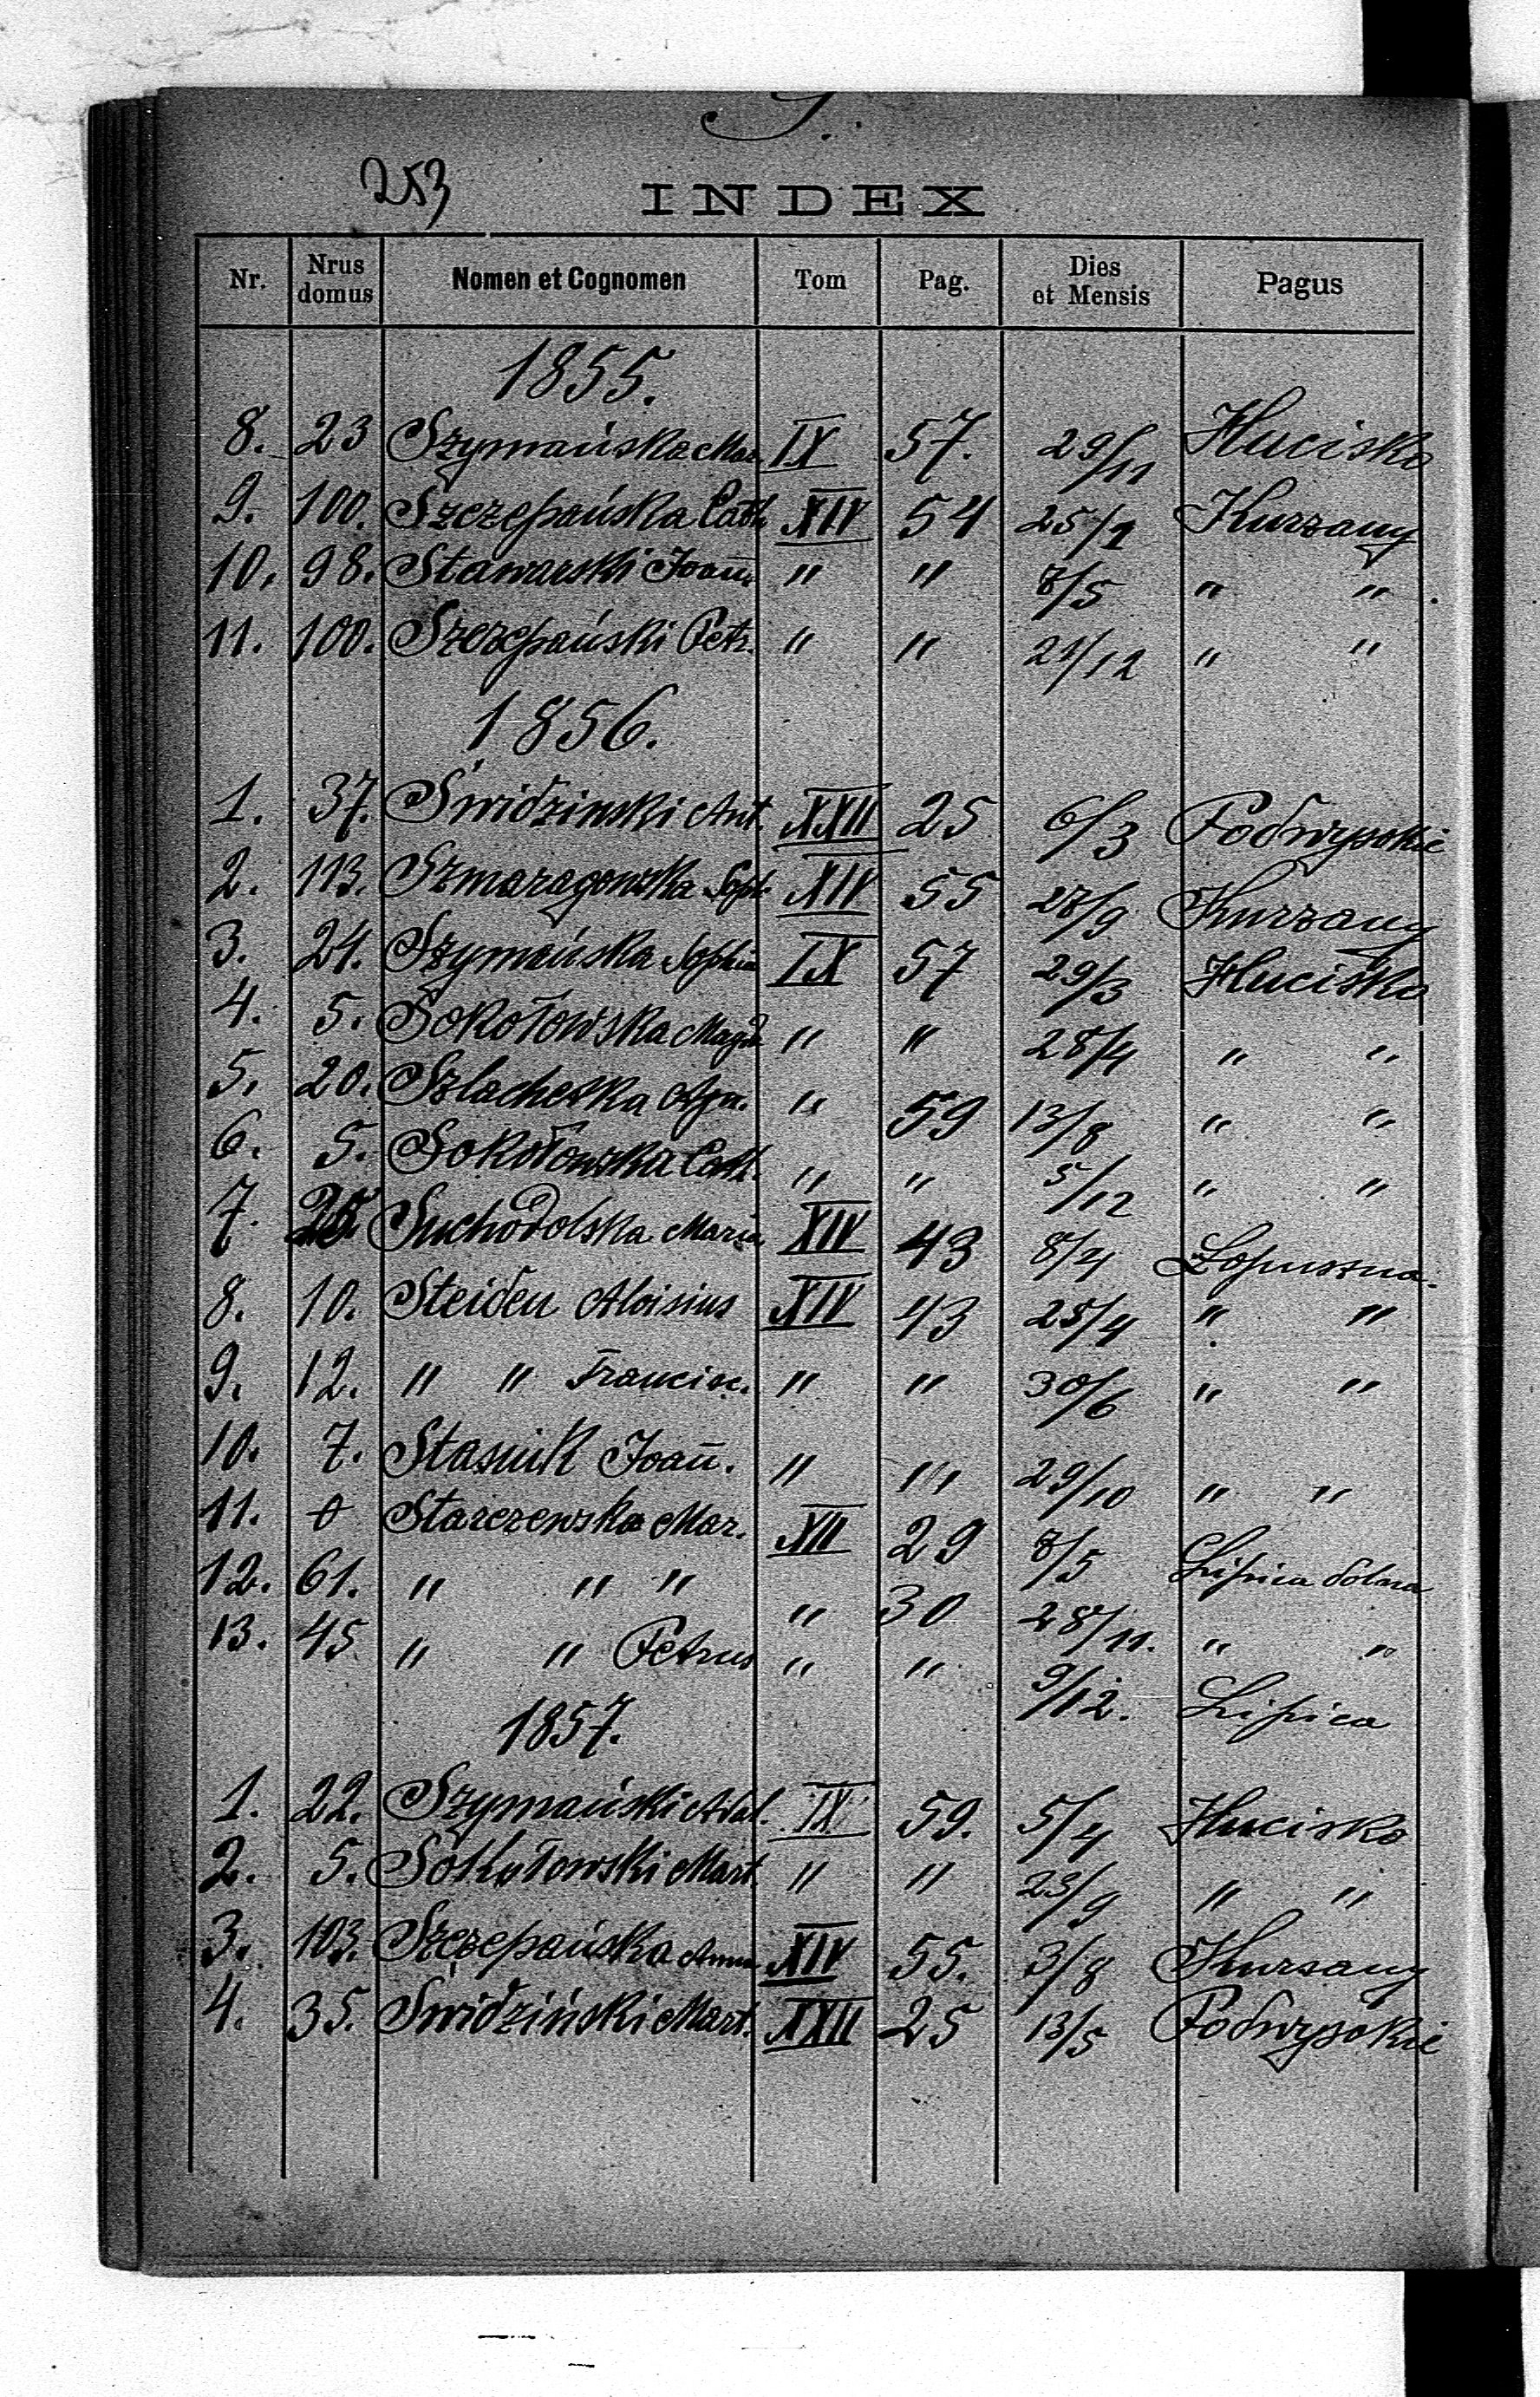 S.
253
INDEX
Nr. Nrus domus Nomen et Cognomen Tom Pag. Dies et Mensis Pagus
1855.
8. 23 Szymańska Mar. IX 57. 29/11 Hucisko
9. 100. Szczepańska Cath. XIV 54 25/1 Kurzany
10. 98. Stawarski Joan̄. " " 8/5 " "
11. 100. Szczepański Petr. " " 21/12 " "
1856.
1. 37. Świdzinski Ant. XXII 25 6/3 Podwysokie
2. 113. Szmaragowska Soph. XIV 55 28/9 Kurzany
3. 24. Szymańska Sophia IX 57 29/3 Hucisko
4. 5. Sokołowska Magda " " 28/4 " "
5. 20. Szlacheska Agn. " 59 13/8 " "
6. 5. Sokołowska Cath. " " 5/12 " "
7. Suchodolska Maria XIV 43 8/4 Łopuszna.
8. 10. Steiden Aloisius XIV 43 25/4 " "
9. 12. " " Francisc. " " 30/6 " "
10. 7. Stasiuk Joan̄. " " 29/10 " "
11. 0 Starczewska Mar. XII 29 8/5 Lipica dolna
12. 61. " " " " 30 28/11. " "
13. 45 " " Petrus " " 9/12. Lipica
1857.
1. 22. Szymański Adal. IX 59. 5/4 Hucisko
2. 5. Sokołowski Mart. " " 23/9 " "
3. 103. Szczepańska Anna XIV 55. 3/8 Kurzany
4. 35. Świdziński Mart. XXII 25 13/5 Podwysokie